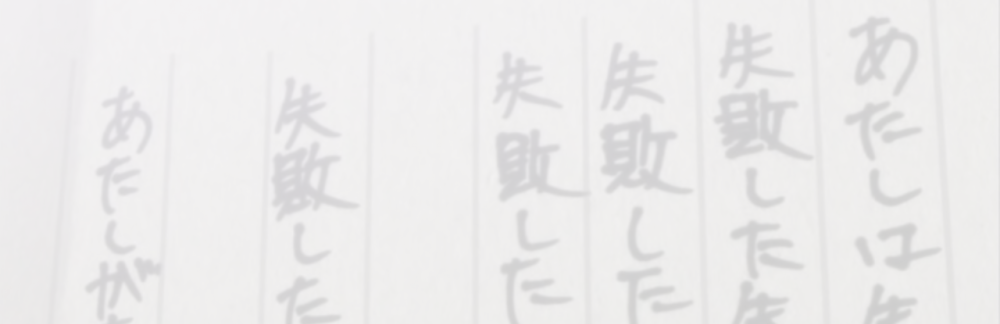 あたしは失
失敗した失
失敗した
失敗した
失敗した
あたしが